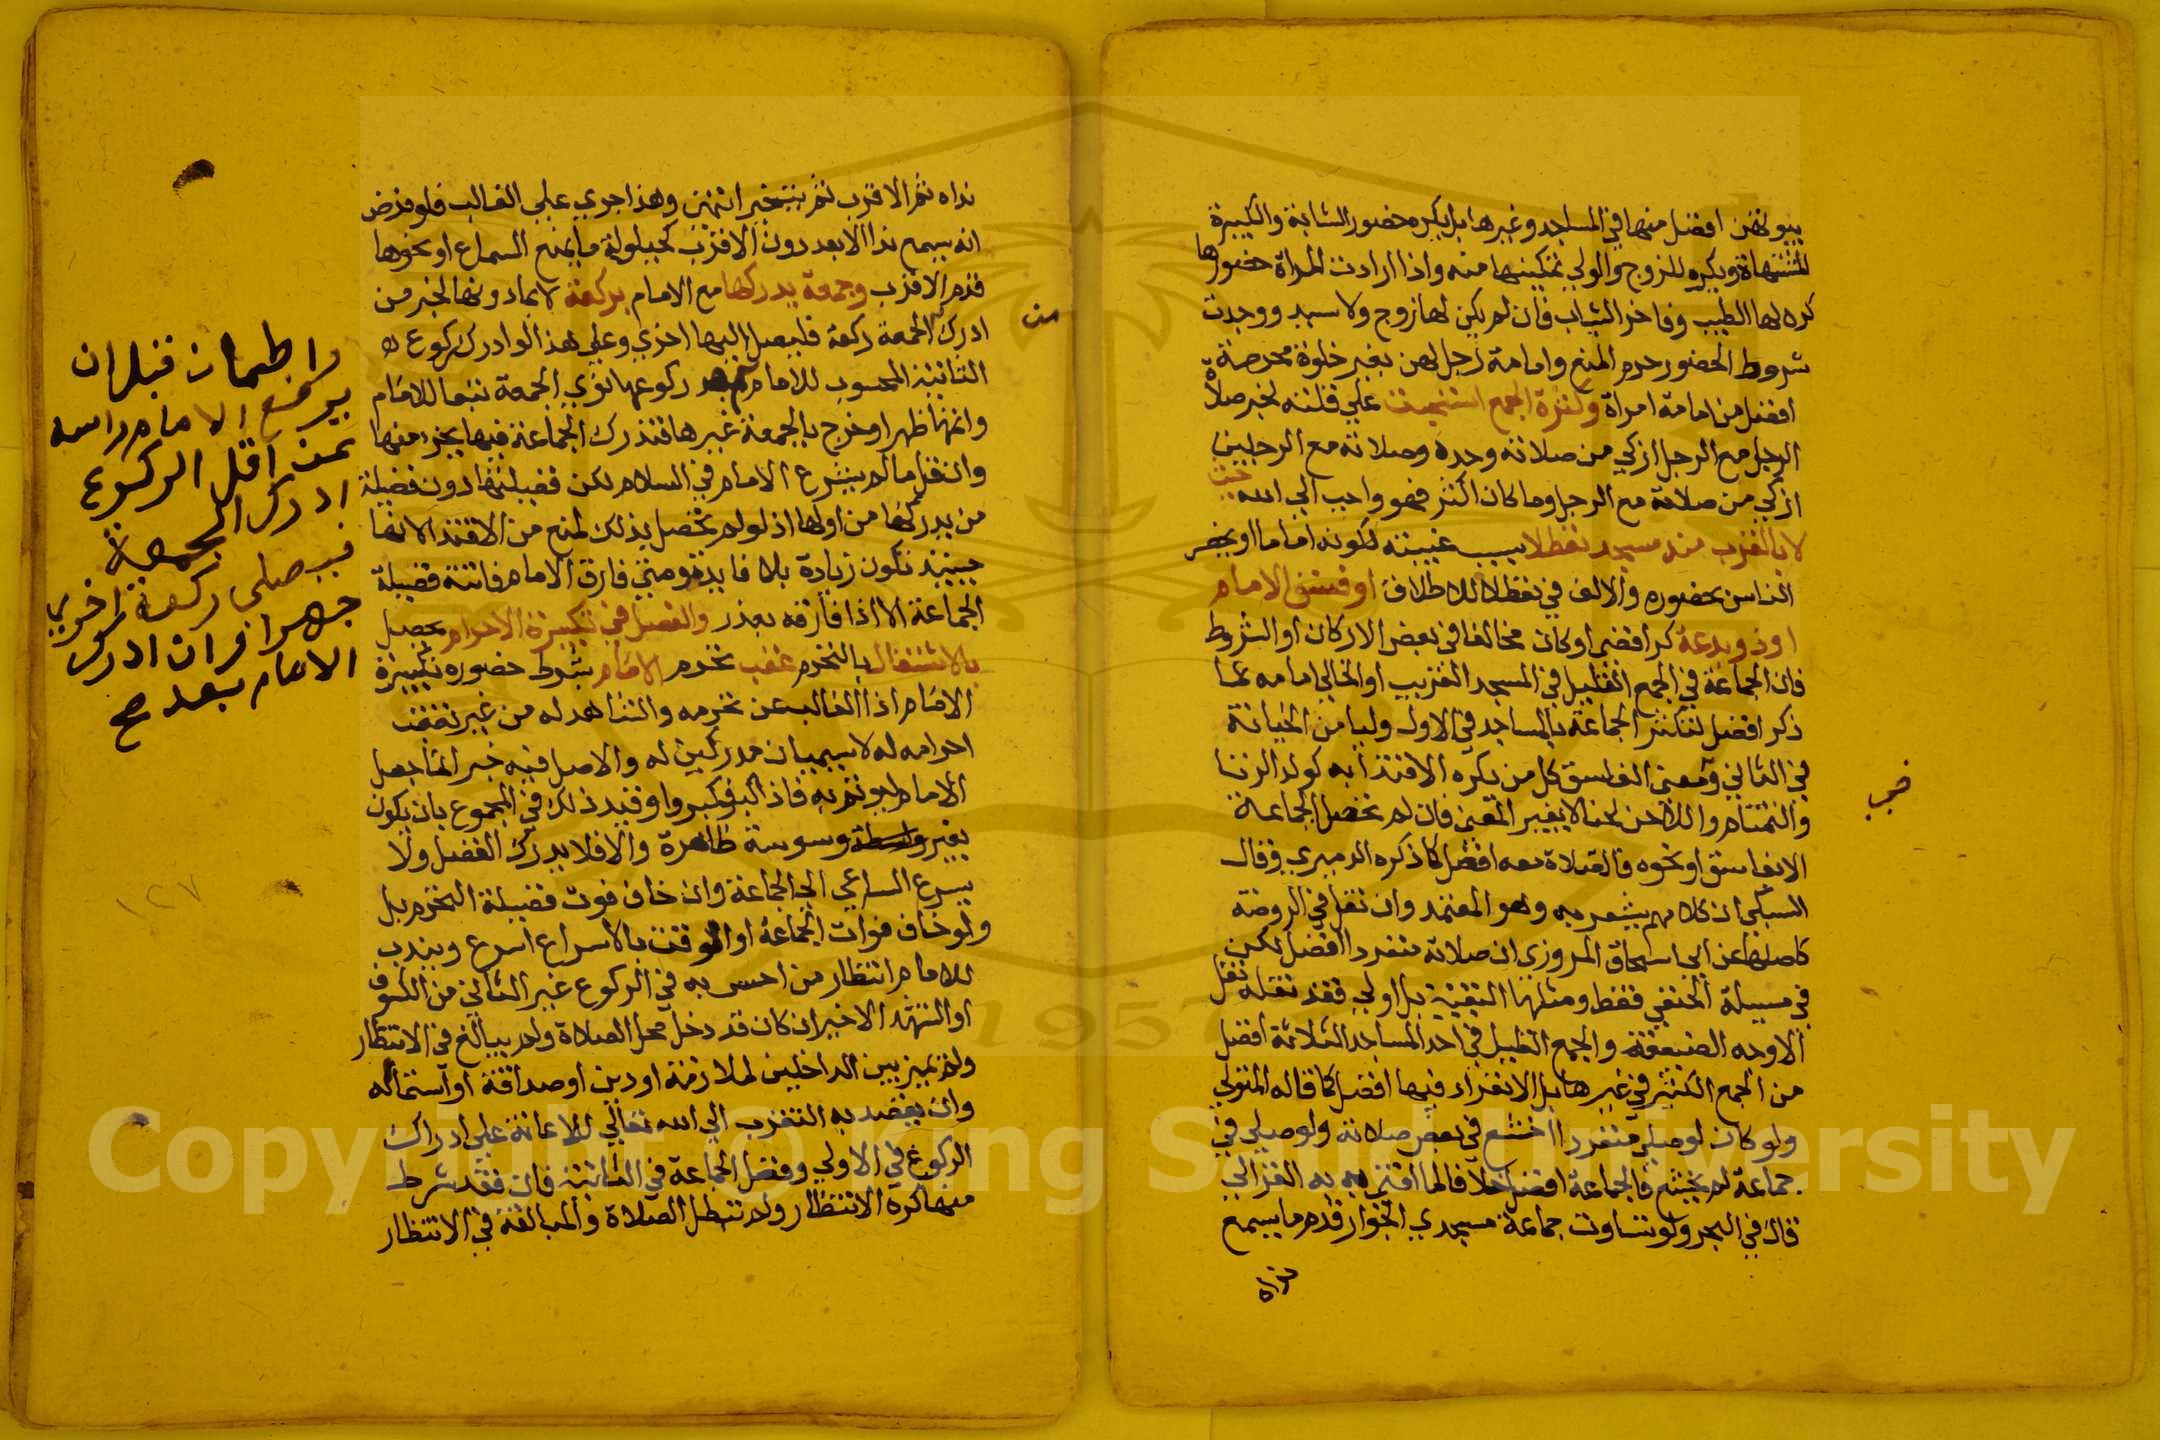 بيوتهن افضل منها في المساجد وغيرها بل يكره حضور الشابة والكبيرة
المشتهاة ويكره للزوج والولي تمكينها منه واذا ارادت المراة حضورها
كره لها الطيب وفاخر الثياب فان لم يكن لها زوج ولا سيد ووجدت
شروط الحضور حرم المنع وامامة رجل لهن بغير خلوة محرمة
افضل من امامة امراة وكثرة الجمع استحبت على قلته لخبر صلاة
الرجل مع الرجل ازكي من صلاته وحده وصلاته مع الرجلين
ازكي من صلاته مع الرجل وما كان اكثر فهو واحب الي الله حيث
لا بالقرب منه مسجد تعطلا بسبب غيبته لكونه اماما او يحضر
الناس بحضوره والالف في تعطلا للاطلاق او فسق الامام
او ذو بدعة كرافضي او كان مخالفا في بعض الاركان او الشروط
فان الجماعة في الجمع القليل في المسجد القريب او الخالي امامه عما
ذكر افضل لتكثر الجماعة بالمساجد في الاول وليامن الخيانة
في الثاني وفي معنى الفاسق كل من يكره الاقتدا به كولد الزنا
والتمتام واللاحن لحنا لا يغير المعنى فان لم تحصل الجماعة
الا بفاسق او نحوه فالصلاة معه افضل كما ذكره الدميري وقال
السبكي ان كلامهم يشعر به وهو المعتمد وان نقل في الروضة
كاصلها عن ابي اسحاق المروزي ان صلاته منفردا افضل لكن
في مسيلة الحنفي فقط ومثلها البقية بل اولي فقد نقله نقل
الاوجه الضعيفة والجمع القليل في احد المساجد الثلاثة افضل
من الجمع الكثير في غيرها بل الانفراد فيها افضل كما قاله المتولي
ولو كان لو صلي منفردا خشع في بعض صلاته ولو صلي في
جماعة لم يخشع فالجماعة افضل خلافا لما افتى به الغزالي
قال في البحر ولو تساوت جماعة مسجدي الجوار قدم ما يسمع
نداه
نداه ثم الاقرب ثم يتخير انتهى وهذا جري على الغالب فلو فرض
انه يسمع ندا الابعد دون الاقرب لحيلولة ما يمنع السماع او نحوها
قدم الاقرب وجمعة يدركها مع الامام بركعة لا بما دونها لخبر من
ادرك الجمعة ركعة فليصل اليها اخري وعلى هذا لو ادرك ركوع
الثانية المحسوب للامام ركوعها نوي الجمعة تبعا للامام
واتمها ظهرا وخرج بالجمعة غيرها فتدرك الجماعة فيها بجزء منها
وان قل ما لم يشرع الامام في السلام لكن فضيلتها دون فضيلة
من يدركها من اولها اذ لو لم تحصل بذلك لمنع من الاقتدا لانها
حينئذ تكون زيادة بلا فايدة ومتى فارق الامام فاتته فضيلة
الجماعة الا اذا فارقه بعذر والفضل في تكبيرة الاحرام يحصل
بالاشتغال بالتحرم عقب تحرم الامام بشرط حضوره تكبيرة
الامام اذ الغالب عن تحرمه والشاهد له من غير تعقب
احرامه له لا يسميان مدركين له والاصل فيه خبر انما جعل
الامام ليوتم به فاذا كبر فكبروا وقيد ذلك في المجموع بان يكون
بغير وسوسة ظاهرة والا فلا يدرك الفضل ولا
يسرع الساعي الى الجماعة وان خاف فوت فضيلة التحرم بل
ولو خاف فوات الجماعة او الوقت بالاسراع اسرع ويندب
للامام انتظار من احس به في الركوع غير الثاني من الكسوف
او التشهد الاخير ان كان قد دخل محل الصلاة ولم يبالغ في الانتظار
ولم يميز بين الداخلين لملازمة او دين او صداقة او استمالة
وان يقصد به التقرب الي الله تعالي للاعانة على ادراك
الركوع في الاولي وفضل الجماعة في الثانية فان فقد شرط
منها كره الانتظار ولم تبطل الصلاة والمبالغة في الانتظار
من
واطمان قبل ان
يرفع الامام راسه
عن اقل الركوع
ادرك الجمعة
فيصلى ركعة اخرى
جهرا فان ادرك
الامام بعد صح
١٢٧
Copyright © King Saud University
1957